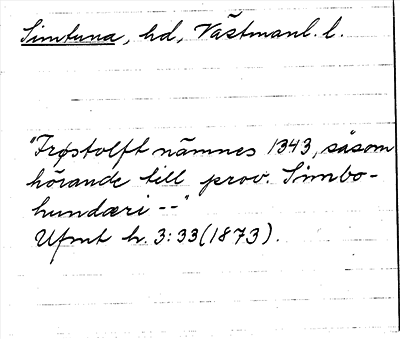 Simtuna, hd, Västmanl. l.
"Frøstolft nämnes 1343, såsom
hörande till prov. Simbo-
hundæri --"
Ufmt h. 3:33 (1873).